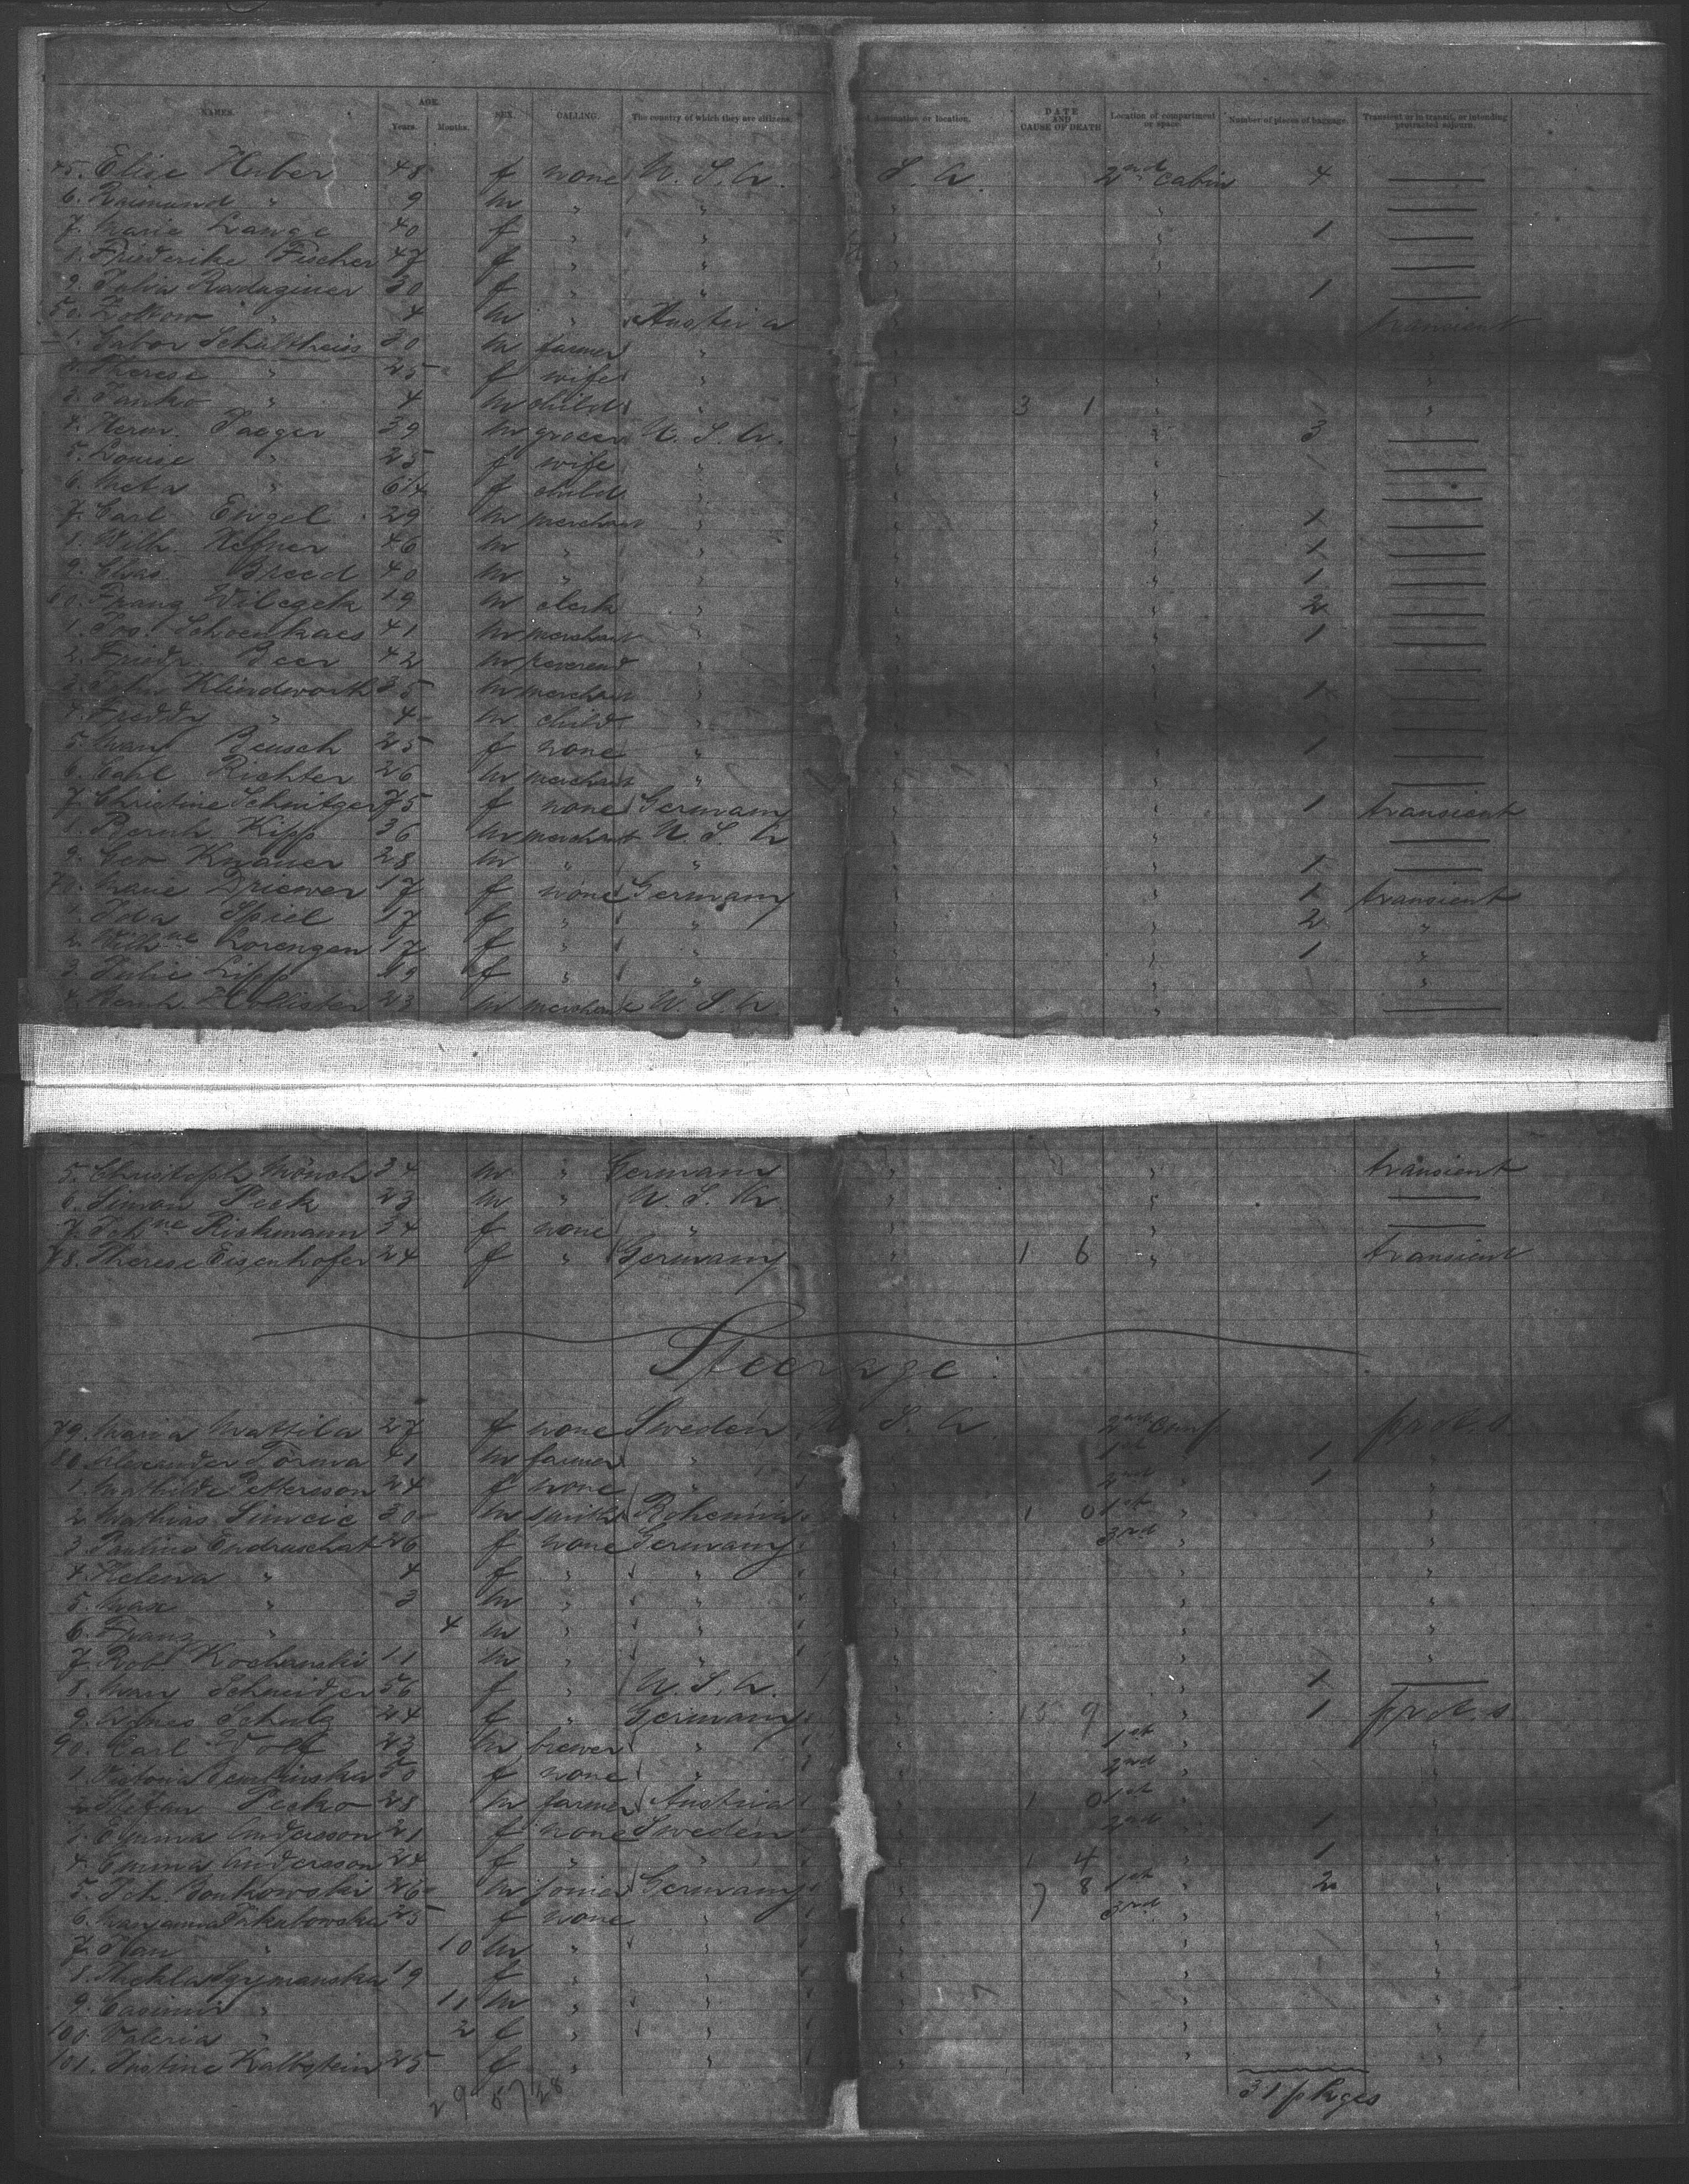 NAMES. AGE. Years. Months. SEX. CALLING. The country of which they are citizens. destination or location. DATE AND CAUSE OF DEATH Location of compartment or space. Number of pieces of baggage. Transient or in transit, or intending protracted sojourn.
45. Elise Huber 48 f none U. S. A. S. A. 2nd Cabin 4 —
6. Raimund " 9 m " " " " —
7. Marie Lange 40 f " " " " 1 —
8. Friederike Fischer 47 f " " " —
9. Julia 30 f " " " 1 —
50. " 4 m " Austria " transient
1. Schultheiss 30 m farmer " " "
2. Therese " 25 f wife " " "
3. Janko " 4 m child " " 3 1 " "
4. Herm. Jaeger 39 m grocer U. S. A. " 3 —
5. Louise " 25 f wife " " —
6. Meta " 6 f child " " —
7. Carl Engel 29 m merchant " " 1 —
8. Wilh. Hefner 46 m " " " 1 —
9. Chas. Breed 40 m " " " 1 —
60. Franz 19 m clerk " 2 —
1. Jos. 41 m merchant " 1 —
2. Friedr. Beer 42 m reverend " —
3. John Klindworth 35 m merchant " 1 —
4. Freddy " 4 m child " —
5. Mary Beusch 25 f none " " 1 —
6. Carl Richter 26 m merchant " —
7. Christine Schnitger 75 f none Germany " 1 transient
8. Bernh. Kipp 36 m merchant U. S. A " —
9. Geo Knauer 28 m " " " 1 —
70. Marie Driewer 17 f none Germany " 1 transient
1. Ida Spiel 17 f " " " 2 "
2. Wilh.ne Lorenzen 17 f " " " 1 "
3. Julie Lipp 19 f " " " "
4. Bernh. Hollister 23 m merchant U. S. A " —
5. Christoph Mönch 34 m " Germany " " transient
6. Simon Peck 23 m " U. S. A. " —
7. Joh.ne Rickmann 34 f none " " —
78. Therese Eisenhofer 24 f " Germany " 1 6 " transient
Steerage.
79. Maria Mattila 27 f none Sweden U. S. A. 2nd Comp prot. s.
80. Alexander Torma 41 m farmer " " 1st " 1 "
1. Mathilde Pettersson 24 f none " " 2nd " 1 "
2. Mathias Simcic 30 m smith Bohemia " 1 0 1st " "
3. Pauline Endruschat 26 f none Germany " 3rd " "
4. Helena " 4 f " " " " "
5. Max " 3 m " " " " "
6. Franz " 4 m " " " " "
7. Rob. Kochanski 11 m " " " " "
8. Mary Schneider 56 f " U. S. A. " " 1 —
9. Agnes Schulz 24 f " Germany " 15 9 " 1 prot. s
90. Carl Wolf 23 m brewer " 1st " "
1. Victoria 50 f none " 2nd " "
2. Stefan Pecko 28 m farmer Austria " 1 0 1st " "
3. Emma Andersson 21 f none Sweden " 2nd " 1 "
4. Emma Andersson 24 f " " " 1 4 " 1 "
5. Joh. Bonkowski 26 m joiner Germany " 7 8 1st " 2 "
6. Maryanna Jakubowska 25 f none " " 3rd " "
7. Jan " 10 m " " " " "
8. Thekla Szymanska 19 f " " " " "
9. Casimir " 11 m " " " " "
100. Valeria " 2 f " " " " "
101. Justine Kalbstein 25 f " " " " "
29 57/28 31 pkges